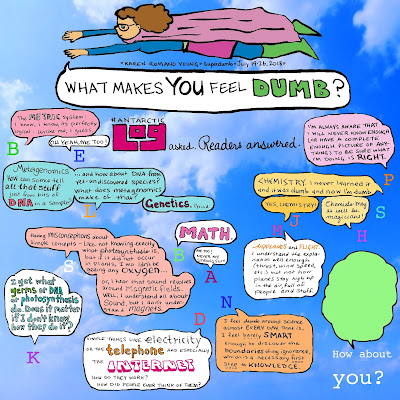 • KAREN ROMANO YOUNG • Superdumb • July 14-26, 2018 •
WHAT MAKES YOU FEEL DUMB?
#ANTARCTIC
LOG
asked. Readers answered.
The METRIC system.
I know, I know, its perfectly
logical. Unlike me, I guess.
OH YEAH, ME TOO!
B
E
I'M ALWAYS AWARE THAT I
WILL NEVER KNOW ENOUGH
(OR HAVE A COMPLETE
ENOUGH PICTURE OF ANY-
THING) TO BE SURE WHAT
I'M DOING IS RIGHT.
Metagenomics
HOW can science tell
all that stuff
just from bits of
DNA in a sample?
L
... in and how about DNA from
yet-undiscovered species?
What does metagenomics
make of that?
Genetics. Period.
CHEMISTRY. I never learned it
and it was dumb and now I'm dumb.
YES, CHEMISTRY!
Chemicals may as
well be
magicians!
P
S
M
J
H
Having misconceptions about
simple concepts - like, not knowing exactly
what photosynthesis is,
but if it did not occur
in plants, I wo not be
seeing any OXYGEN...
or, I hear that sound resolves
around magnetic fields.
WELL, I understand all about
sound, but I don't under-
stand magnets.
S
MATH
B
A
D
N
AIRPLANES and FLIGHT.
I understand the expla-
nation well enough
(thrust, wind speed,
etc) but not how
planes stay high up
in the air, full of
people and stuff.
I get what
germs or DNA
or photosynthesis
do. Does it matter
if I don't know
how they do it?
K
SIMPLE THINGS LIKE electricity
OR THE telephone
AND ESPECIALLY
THE INTERNET
HOW DO THEY WORK?
HOW DID PEOPLE EVER THINK OF THEM?
I feel dumb around science
almost EVERY DAR time is.
I feel barely SMART
enough to discover the
boundaries of my ignorance,
which is a necessary first
step to KNOWLEDGE.
How about
you?